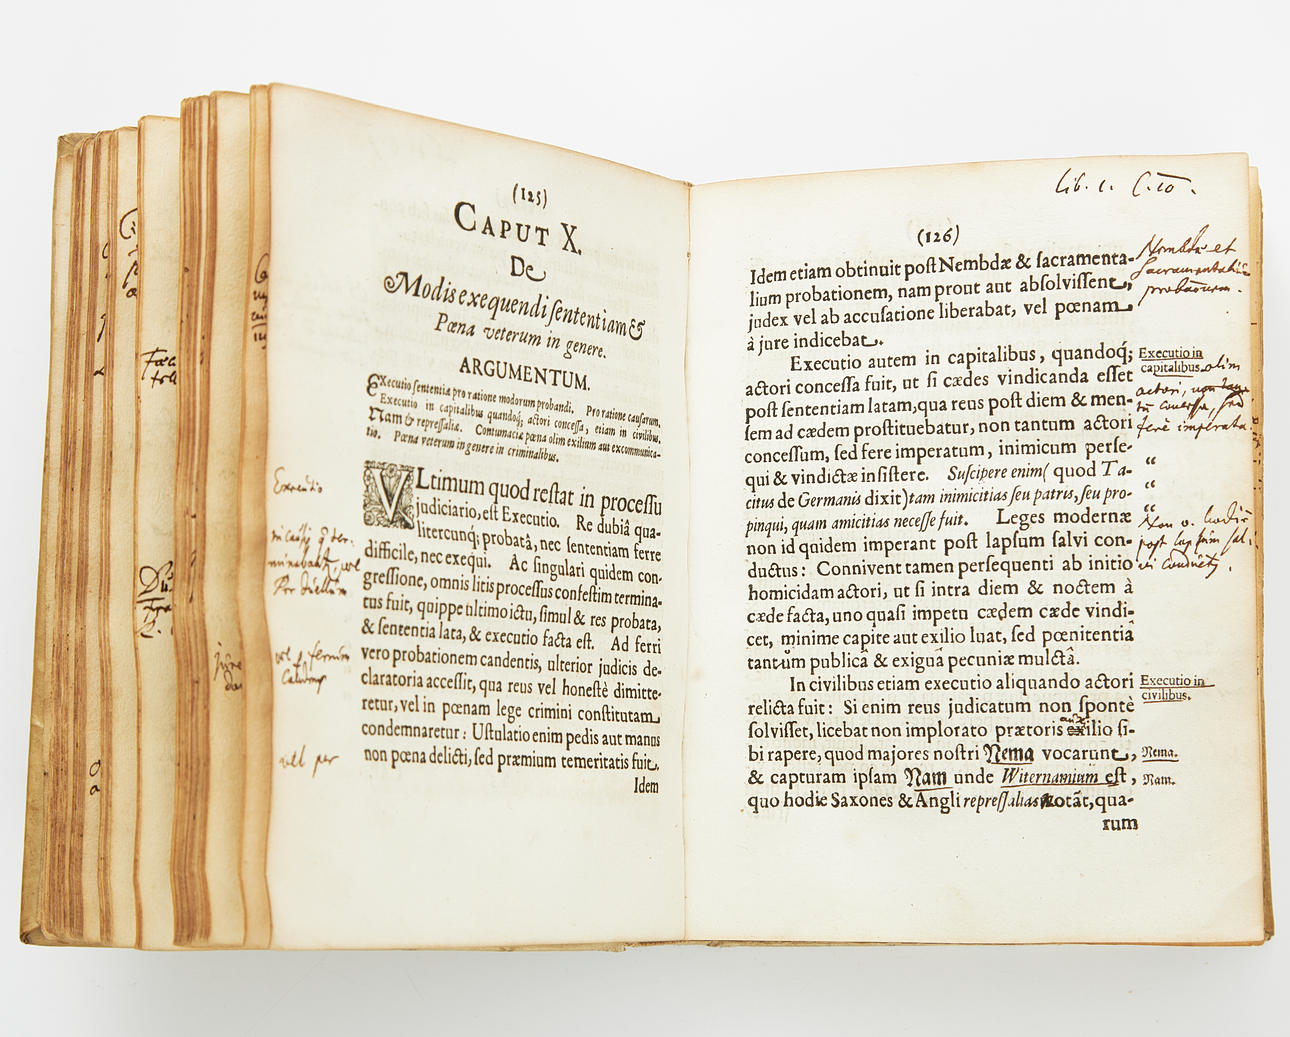 (125)
CAPUT X.
De
Modis exequendi sententiam &
Pœna veterum in genere.
ARGUMENTUM.
Executio sententiæ pro ratione modorum probandi. Pro ratione causarum.
Executio in capitalibus quandoq; actori concessa, etiam in civilibus.
Nam & repressaliæ. Contumaciæ pœna olim exilium aut excommunica-
tio. Pœna veterum in genere in criminalibus.
VLtimum quod restat in processu
judiciario, est Executio. Re dubiâ qua-
litercunq; probatâ, nec sententiam ferre
difficile, nec exequi. Ac singulari quidem con-
gressione, omnis litis processus confestim termina-
tus fuit, quippe ultimo ictu, simul & res probata,
& sententia lata, & executio facta est. Ad ferri
vero probationem candentis, ulterior judicis de-
claratoria accessit, qua reus vel honestè dimitte-
retur, vel in pœnam lege crimini constitutam
condemnaretur: Ustulatio enim pedis aut manus
non pœna delicti, sed præmium temeritatis fuit.
Idem
Executio
vel per
Lib. 1. C. 10.
(126)
Idem etiam obtinuit post Nembdæ & sacramenta-
lium probationem, nam prout aut absolvissent,
judex vel ab accusatione liberabat, vel pœnam
à jure indicebat.
Executio autem in capitalibus, quandoq;
actori concessa fuit, ut si cædes vindicanda esset
post sententiam latam, qua reus post diem & men-
sem ad cædem prostituebatur, non tantum actori
concessum, sed fere imperatum, inimicum perse-
qui & vindictæ insistere. Suscipere enim ( quod Ta-
citus de Germanis dixit) tam inimicitias seu patris, seu pro-
pinqui, quam amicitias necesse fuit. Leges modernæ
non id quidem imperant post lapsum salvi con-
ductus: Connivent tamen persequenti ab initio
homicidam actori, ut si intra diem & noctem à
cæde facta, uno quasi impetu cædem cæde vindi-
cet, minime capite aut exilio luat, sed pœnitentiâ
tantum publicâ & exiguâ pecuniæ mulctâ.
In civilibus etiam executio aliquando actori
relicta fuit: Si enim reus judicatum non spontè
solvisset, licebat non implorato prætoris auxilio si-
bi rapere, quod majores nostri Nema vocarunt,
& capturam ipsam Nam unde Witernamium est,
quo hodie Saxones & Angli repressalias notāt, qua-
rum
Nembda et
Sacramentalium
probationem.
Executio in
capitalibus olim
actori,
sed
fere imperata.
“
“
“
post lapsum sal-
vi conductus.
Executio in
civilibus.
Nema.
Nam.